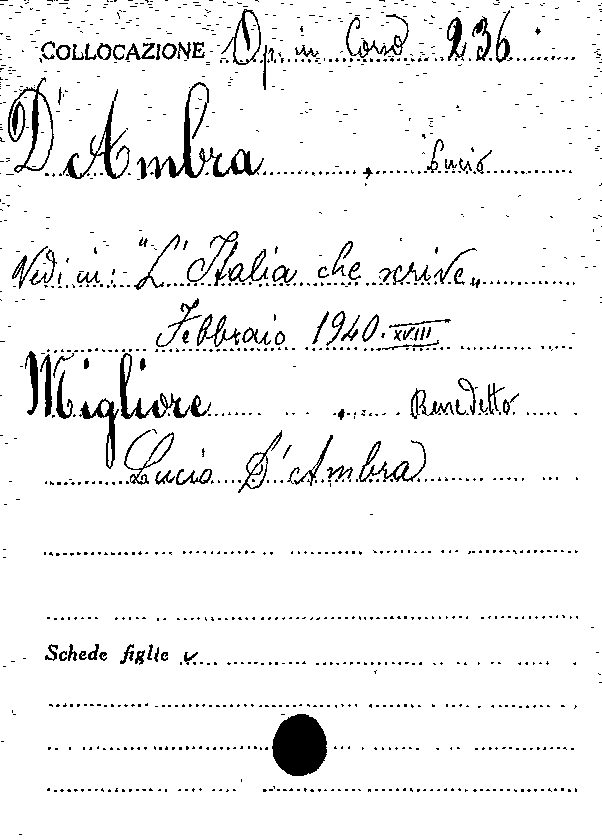 COLLOCAZIONE Op. in Corso 236
D'Ambra, Lucio
Vedi in: "L'Italia che scrive"
Febbraio 1940. XVIII
Migliore, Benedetto
Lucio D'Ambra
Schede figlie v